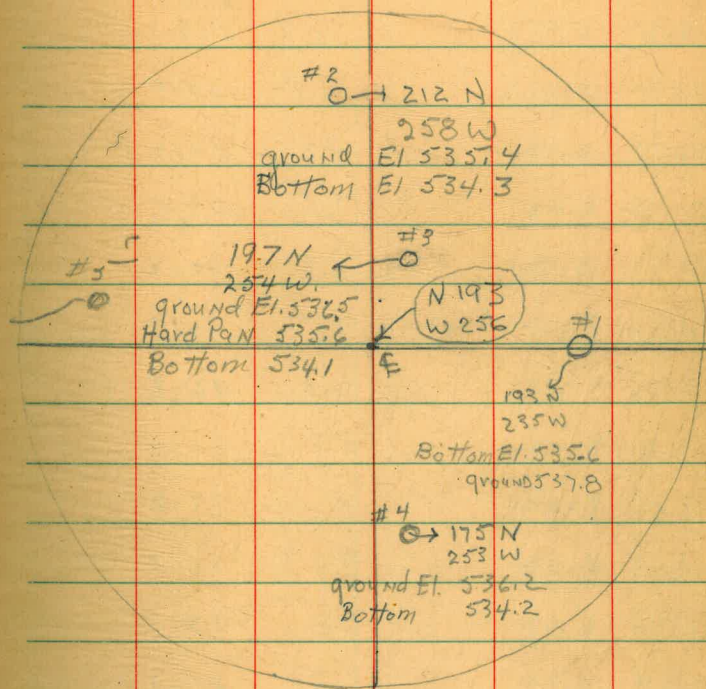 #2
212 N
258 W
ground El 535.4
Bottom El 534.3
#3
197 N
254 W.
#5
N 193
W 256
Hard Pan 535.6
Bottom 534.1
#1
193 N
235 W
Bottom El. 535.6
ground 537.8
#4
175 N
253 W
ground El. 536.2
Bottom 534.2